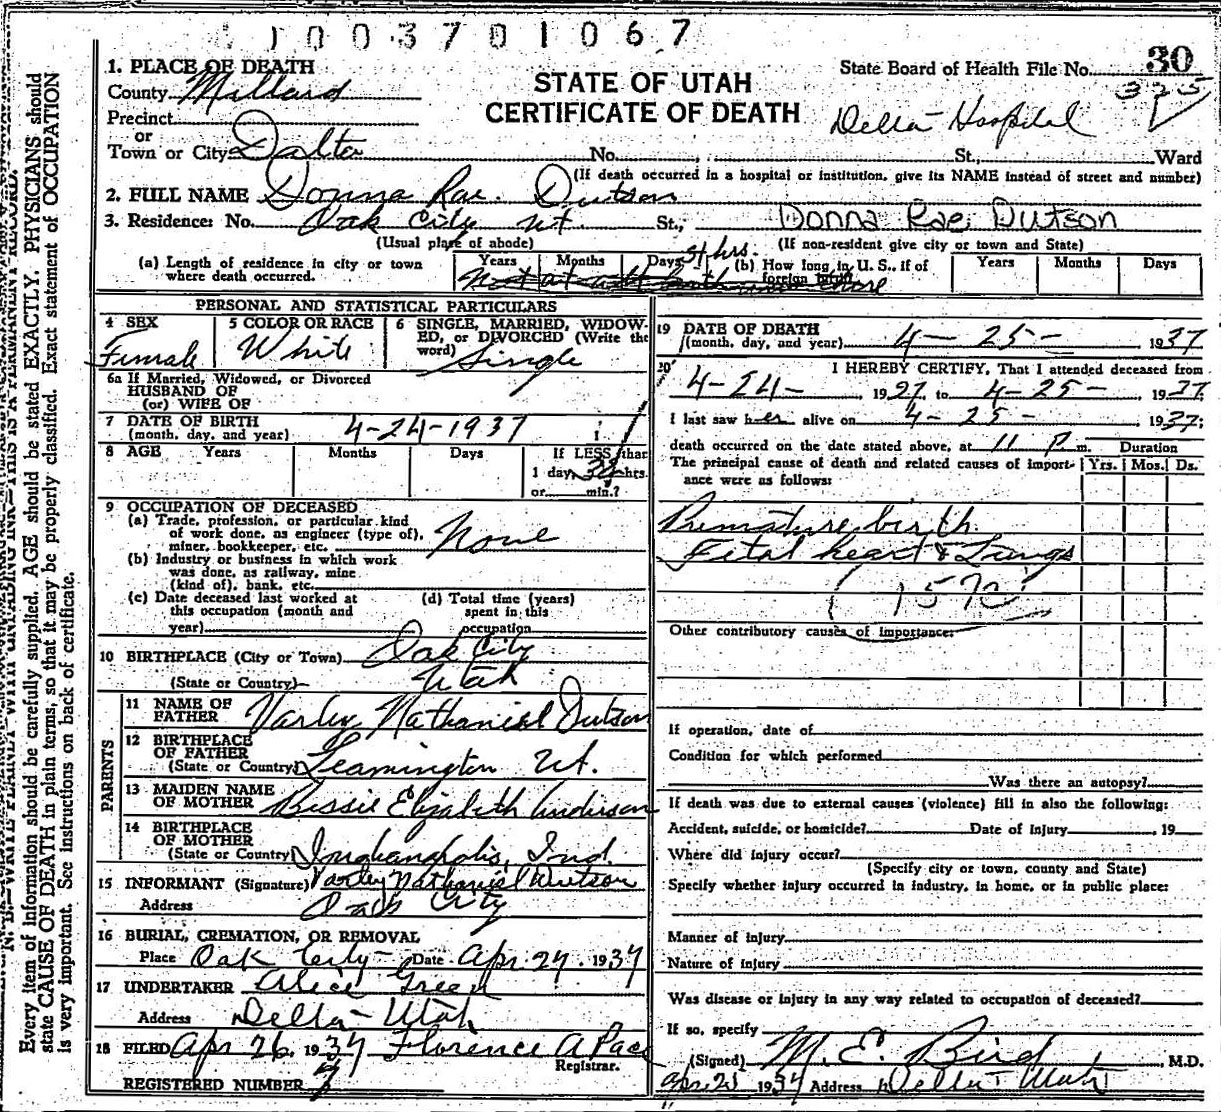 1003701067
1. PLACE OF DEATH
County Millard
Precinct
or
Town or City Dalta
STATE OF UTAH
CERTIFICATE OF DEATH
State Board of Health File No. 30
325
Delta Hospital
No. St., Ward
(If death occurred in a hospital or institution, give its NAME instead of street and number)
2. FULL NAME Donna Rae Dutson
3. Residence: No. Oak City Ut. St., Donna Rae Dutson
(Usual place of abode) (If non-resident give city or town and State)
(a) Length of residence in city or town where death occurred. Years Months Days hrs.
(b) How long in U. S., if of foreign birth Years Months Days
PERSONAL AND STATISTICAL PARTICULARS
4 SEX
Female
5 COLOR OR RACE
White
6 SINGLE, MARRIED, WIDOW-
ED, or DIVORCED (Write the
word) Single
6a If Married, Widowed, or Divorced
HUSBAND OF
(or) WIFE OF
7 DATE OF BIRTH
(month, day, and year) 4-24-1937
8 AGE Years Months Days If LESS than
1 day, hrs.
or min.?
9 OCCUPATION OF DECEASED
(a) Trade, profession, or particular kind
of work done, as engineer (type of),
miner, bookkeeper, etc. None
(b) Industry or business in which work
was done, as railway, mine
(kind of), bank, etc.
(c) Date deceased last worked at
this occupation (month and
year)
(d) Total time (years)
spent in this
occupation
10 BIRTHPLACE (City or Town) Oak City
(State or Country) Utah
PARENTS
11 NAME OF
FATHER Varley Nathaniel Dutson
12 BIRTHPLACE
OF FATHER
(State or Country) Leamington Ut.
13 MAIDEN NAME
OF MOTHER Bessie Elizabeth Anderson
14 BIRTHPLACE
OF MOTHER
(State or Country) Indianapolis, Ind.
15 INFORMANT (Signature) Varley Nathaniel Dutson
Address Oak City
16 BURIAL, CREMATION, OR REMOVAL
Place Oak City Date Apr. 27. 1937
17 UNDERTAKER Alice Green
Address Delta Utah
18 FILED Apr 26. 1937 Florence A Pace
Registrar.
REGISTERED NUMBER 7
19 DATE OF DEATH
(month, day, and year) 4-25- , 1937
20 I HEREBY CERTIFY, That I attended deceased from
4-24- , 1937, to 4-25- , 1937
I last saw her alive on 4-25- , 1937;
death occurred on the date stated above, at 11 P. m. Duration
The principal cause of death and related causes of import-
ance were as follows: Yrs. Mos. Ds.
Premature birth.
Fetal heart & Lungs
Other contributory causes of importance:
If operation, date of
Condition for which performed
Was there an autopsy?
If death was due to external causes (violence) fill in also the following:
Accident, suicide, or homicide? Date of injury 19
Where did injury occur?
(Specify city or town, county and State)
Specify whether injury occurred in industry, in home, or in public place:
Manner of injury
Nature of injury
Was disease or injury in any way related to occupation of deceased?
If so, specify
(Signed) M. E. Bird, M.D.
1937 Address Delta Utah
Every item of information should be carefully supplied. AGE should be stated EXACTLY. PHYSICIANS should
state CAUSE OF DEATH in plain terms, so that it may be properly classified. Exact statement of OCCUPATION
is very important. See instructions on back of certificate.